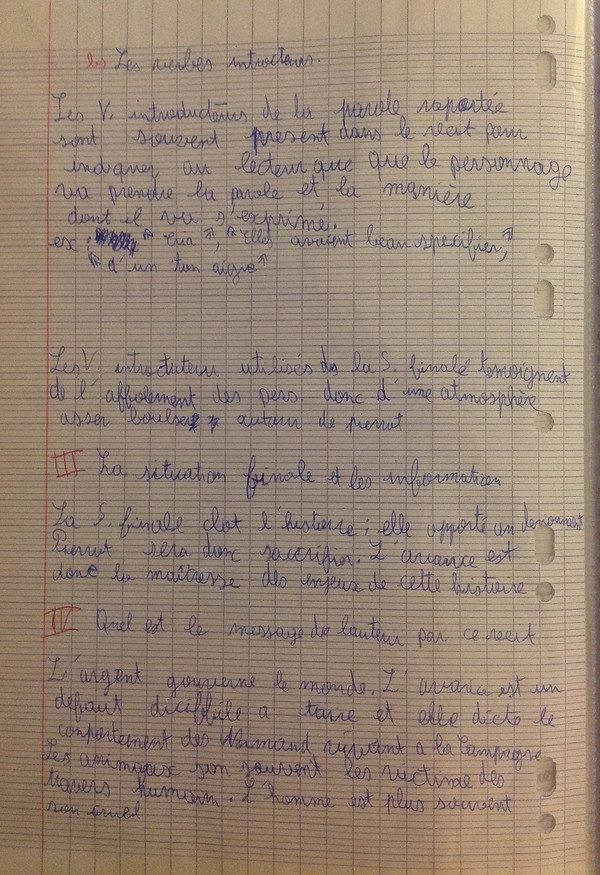 b) Les verbes introcteurs.
Les V. introducteurs de la parole raportée
sont souvent present dans le récit pour
indiquer au lecteur que que le personnage
va prendre la parole et la manière
dont il va s'exprimé.
ex : "Cria", "Elles avaient beau specifier,"
"d'un ton aigre"
Les V. introduteur utilisés ds la S. finale témoignent
de l'affolement des pers. donc d'une atmosphère
asser autour de pierrot
III La situation finale et les information
La S. finale clot l'histoire ; elle apporte un denoument
Pierrot sera donc sacrifier. L'avarice est
donc la maîtresse des enjeux de cette histoire
IV Quel est le message de lauteur par ce recit
L'argent gouverne le monde. L'avarice est un
défaut a taire et elle dicte le
comportement des Normand vivant a la Campagne
Les animaux son souvent les victime des
travers humain. L'homme est plus souvent
son cruel